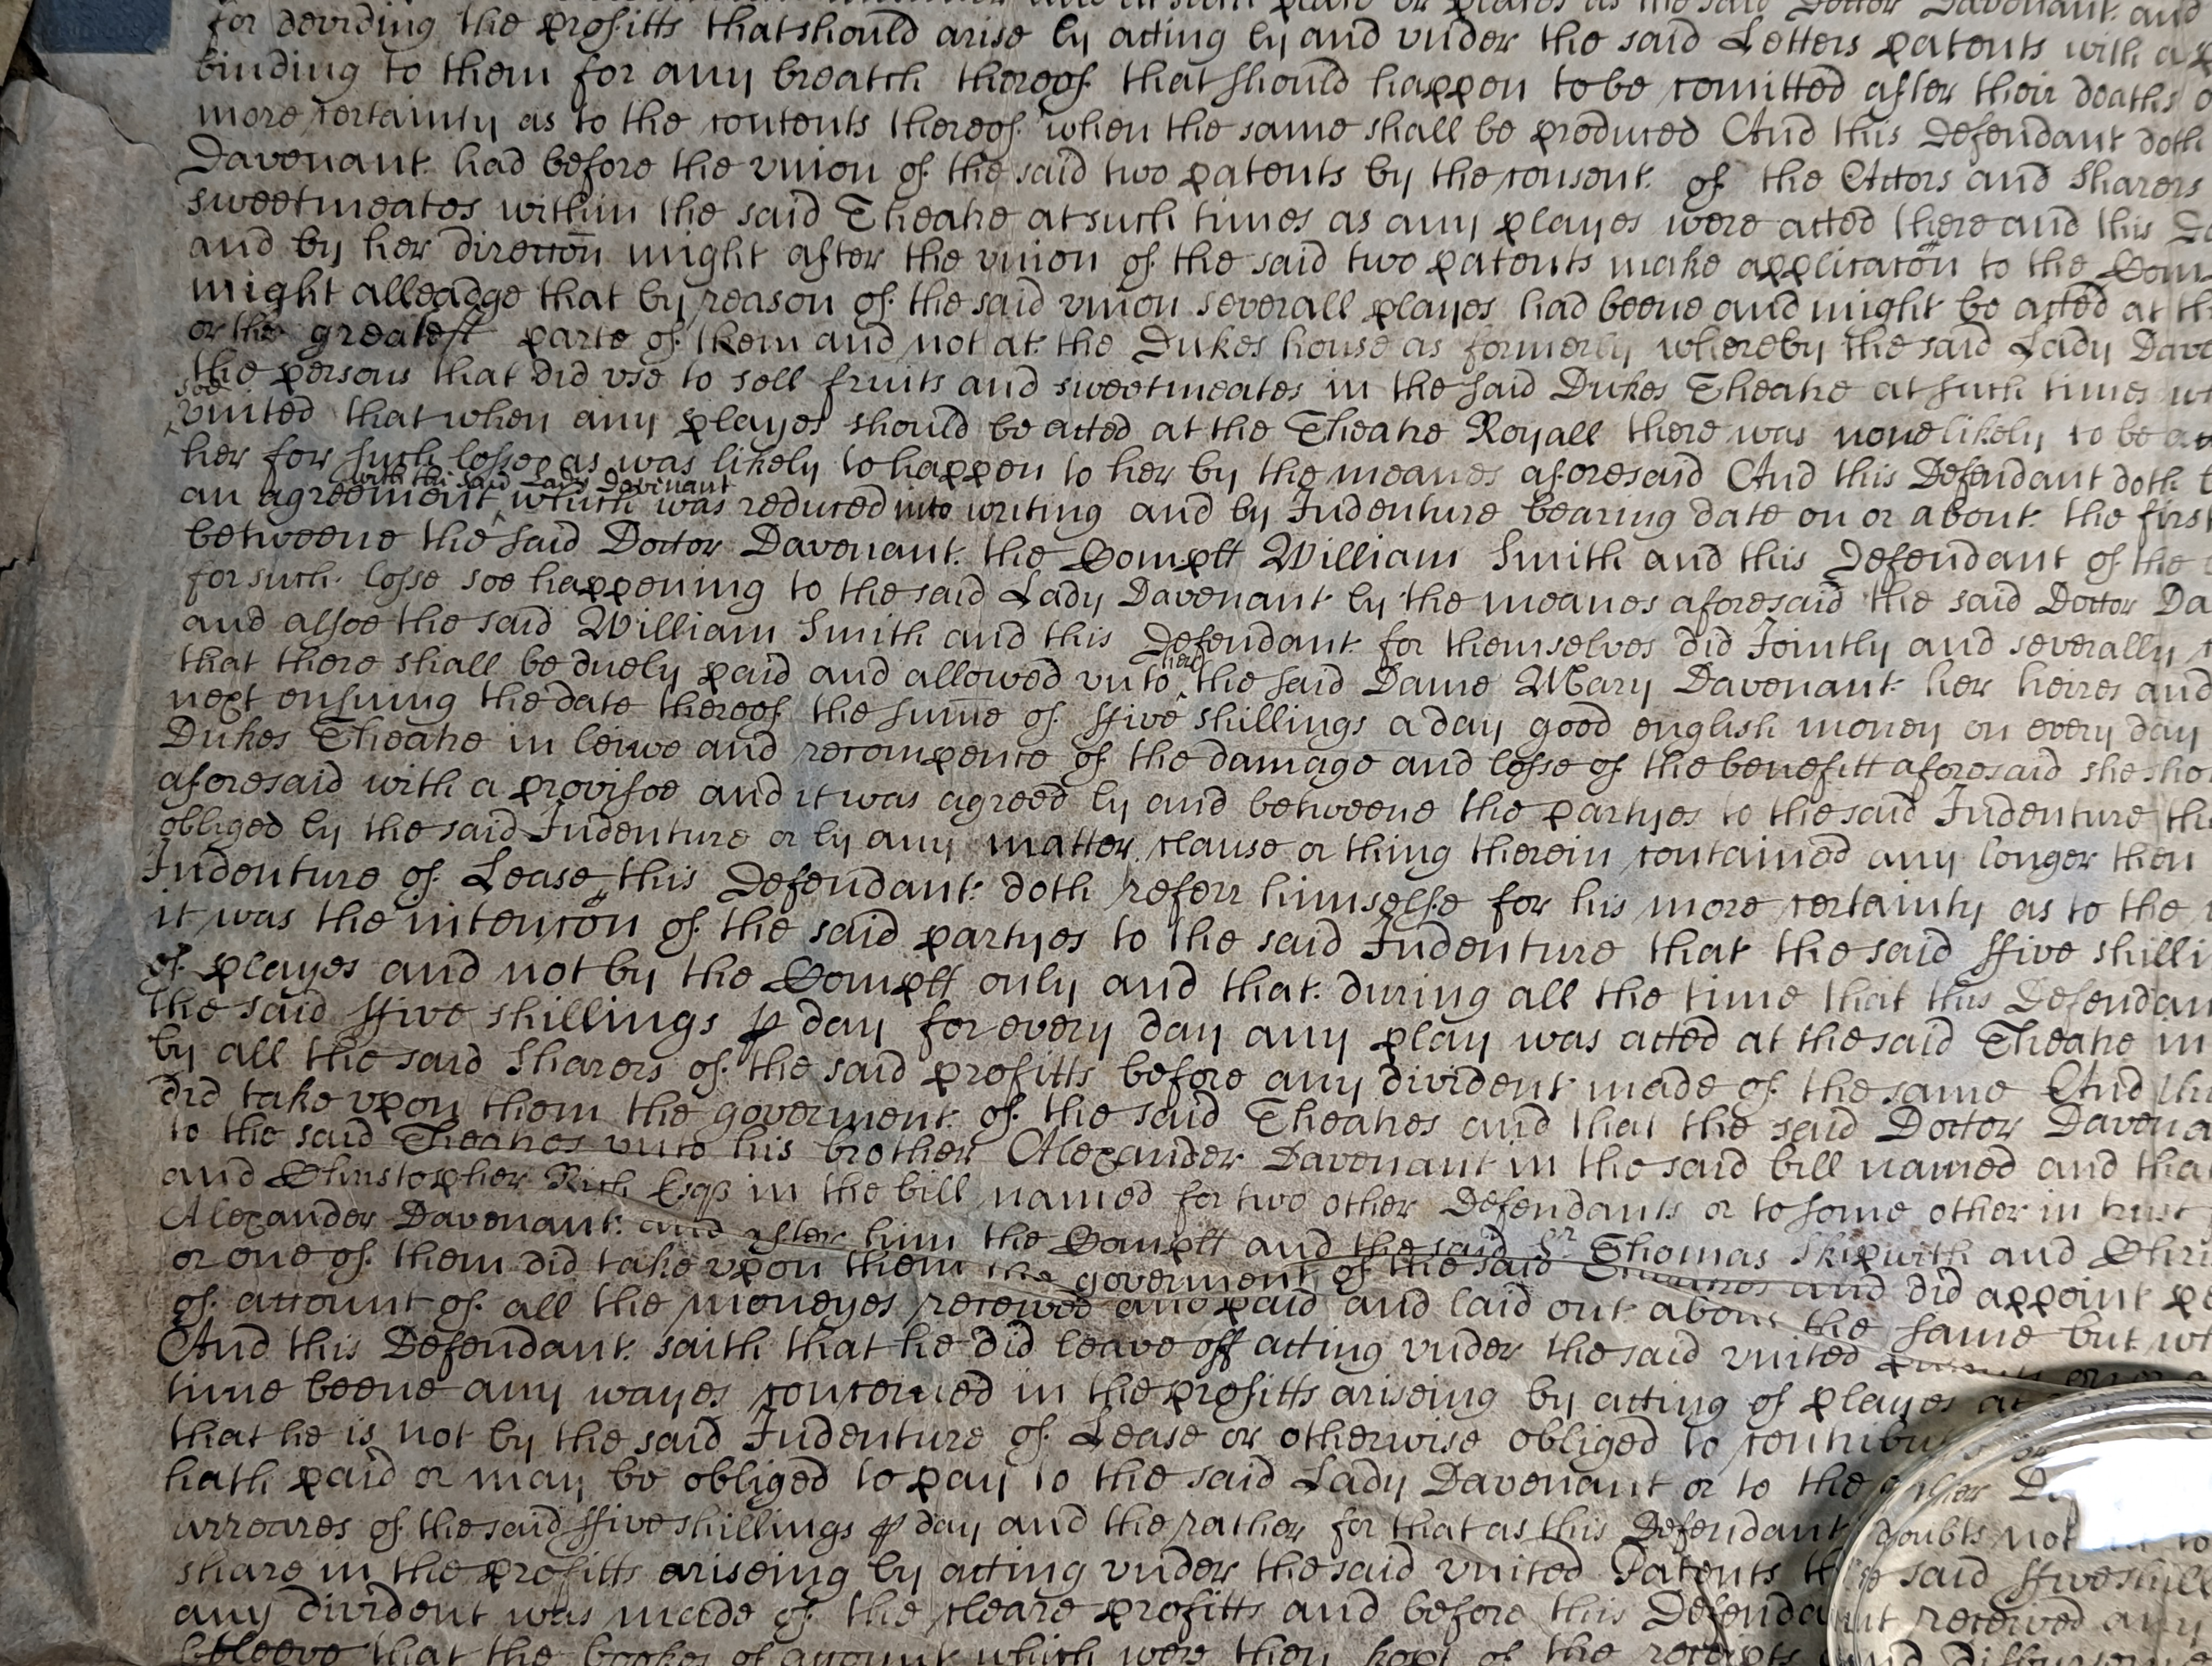 for deviding the profitts that should arise by acting by and vnder the said Letters patents with a
binding to them for any breatch thereof that should happen to be comitted after their deaths
more certainty as to the contents thereof when the same shall be produced And this Defendant doth
Davenant had before the vnion of the said two patents by the consent of the Actors and Sharers
sweetmeates within the said Theatre at such times as any playes were acted there and this
and by her direccon might after the vnion of the said two patents make applicacon to the
might alleadge that by reason of the said vnion severall playes had beene and might be acted at
or the greatest parte of them and not at the Dukes house as formerly whereby the said Lady
the persons that did vse to sell fruits and sweetmeates in the said Dukes Theatre at such times
soe
vnited that when any playes should be acted at the Theatre Royall there was none likely to be
her for such losse as was likely to happen to her by the meanes aforesaid And this Defendant doth
with the said Lady Davenant
an agreement which was reduced into writing and by Indenture bearing date on or about the first
betweene the said Doctor Davenant the Complt William Smith and this Defendant of the
for such losse soe happening to the said Lady Davenant by the meanes aforesaid the said Doctor
and alsoe the said William Smith and this Defendant for themselves did Jointly and severally
her
that there shall be duely paid and allowed vnto the said Dame Mary Davenant her heires and
next ensuing the date thereof the sume of ffive shillings a day good english money on every day
Dukes Theatre in leiwe and recompence of the damage and losse of the benefitt aforesaid she
aforesaid with a provisoe and it was agreed by and betweene the partyes to the said Indenture
obliged by the said Indenture or by any matter clause or thing therein contained any longer then
Indenture of Lease this Defendant doth referr himselfe for his more certainty as to the
it was the intencon of the said partyes to the said Indenture that the said ffive
of playes and not by the Complt only and that during all the time that this
the said ffive shillings p day for every day any play was acted at the said Theatre in
by all the said Sharers of the said profitts before any divident made of the same And
did take vpon them the goverment of the said Theatres and that the said Doctor
to the said Theatres vnto his brother Alexander Davenant in the said bill named and
and Christopher Rich Esqs in the bill named for two other Defendants or to some other in trust
Alexander Davenant and after him the Complt and the said Sr Thomas Skipwith and
or one of them did take vpon them the goverment of the said Theatres and did appoint
of account of all the moneyes received and paid and laid out about the same but
And this Defendant saith that he did leave off acting vnder the said vnited
time beene any wayes concerned in the profitts ariseing by acting of playes
that he is not by the said Indenture of Lease or otherwise obliged to
hath paid or may be obliged to pay to the said Lady Davenant or to the other
arreares of the said ffive shillings p day and the rather for that as this Defendant doubts not
share in the profitts ariseing by acting vnder the said vnited Patents the said
any divident was made of the cleare profitts and before this Defendant received any
beleeve that the bookes of account which were then kept of the receipts and